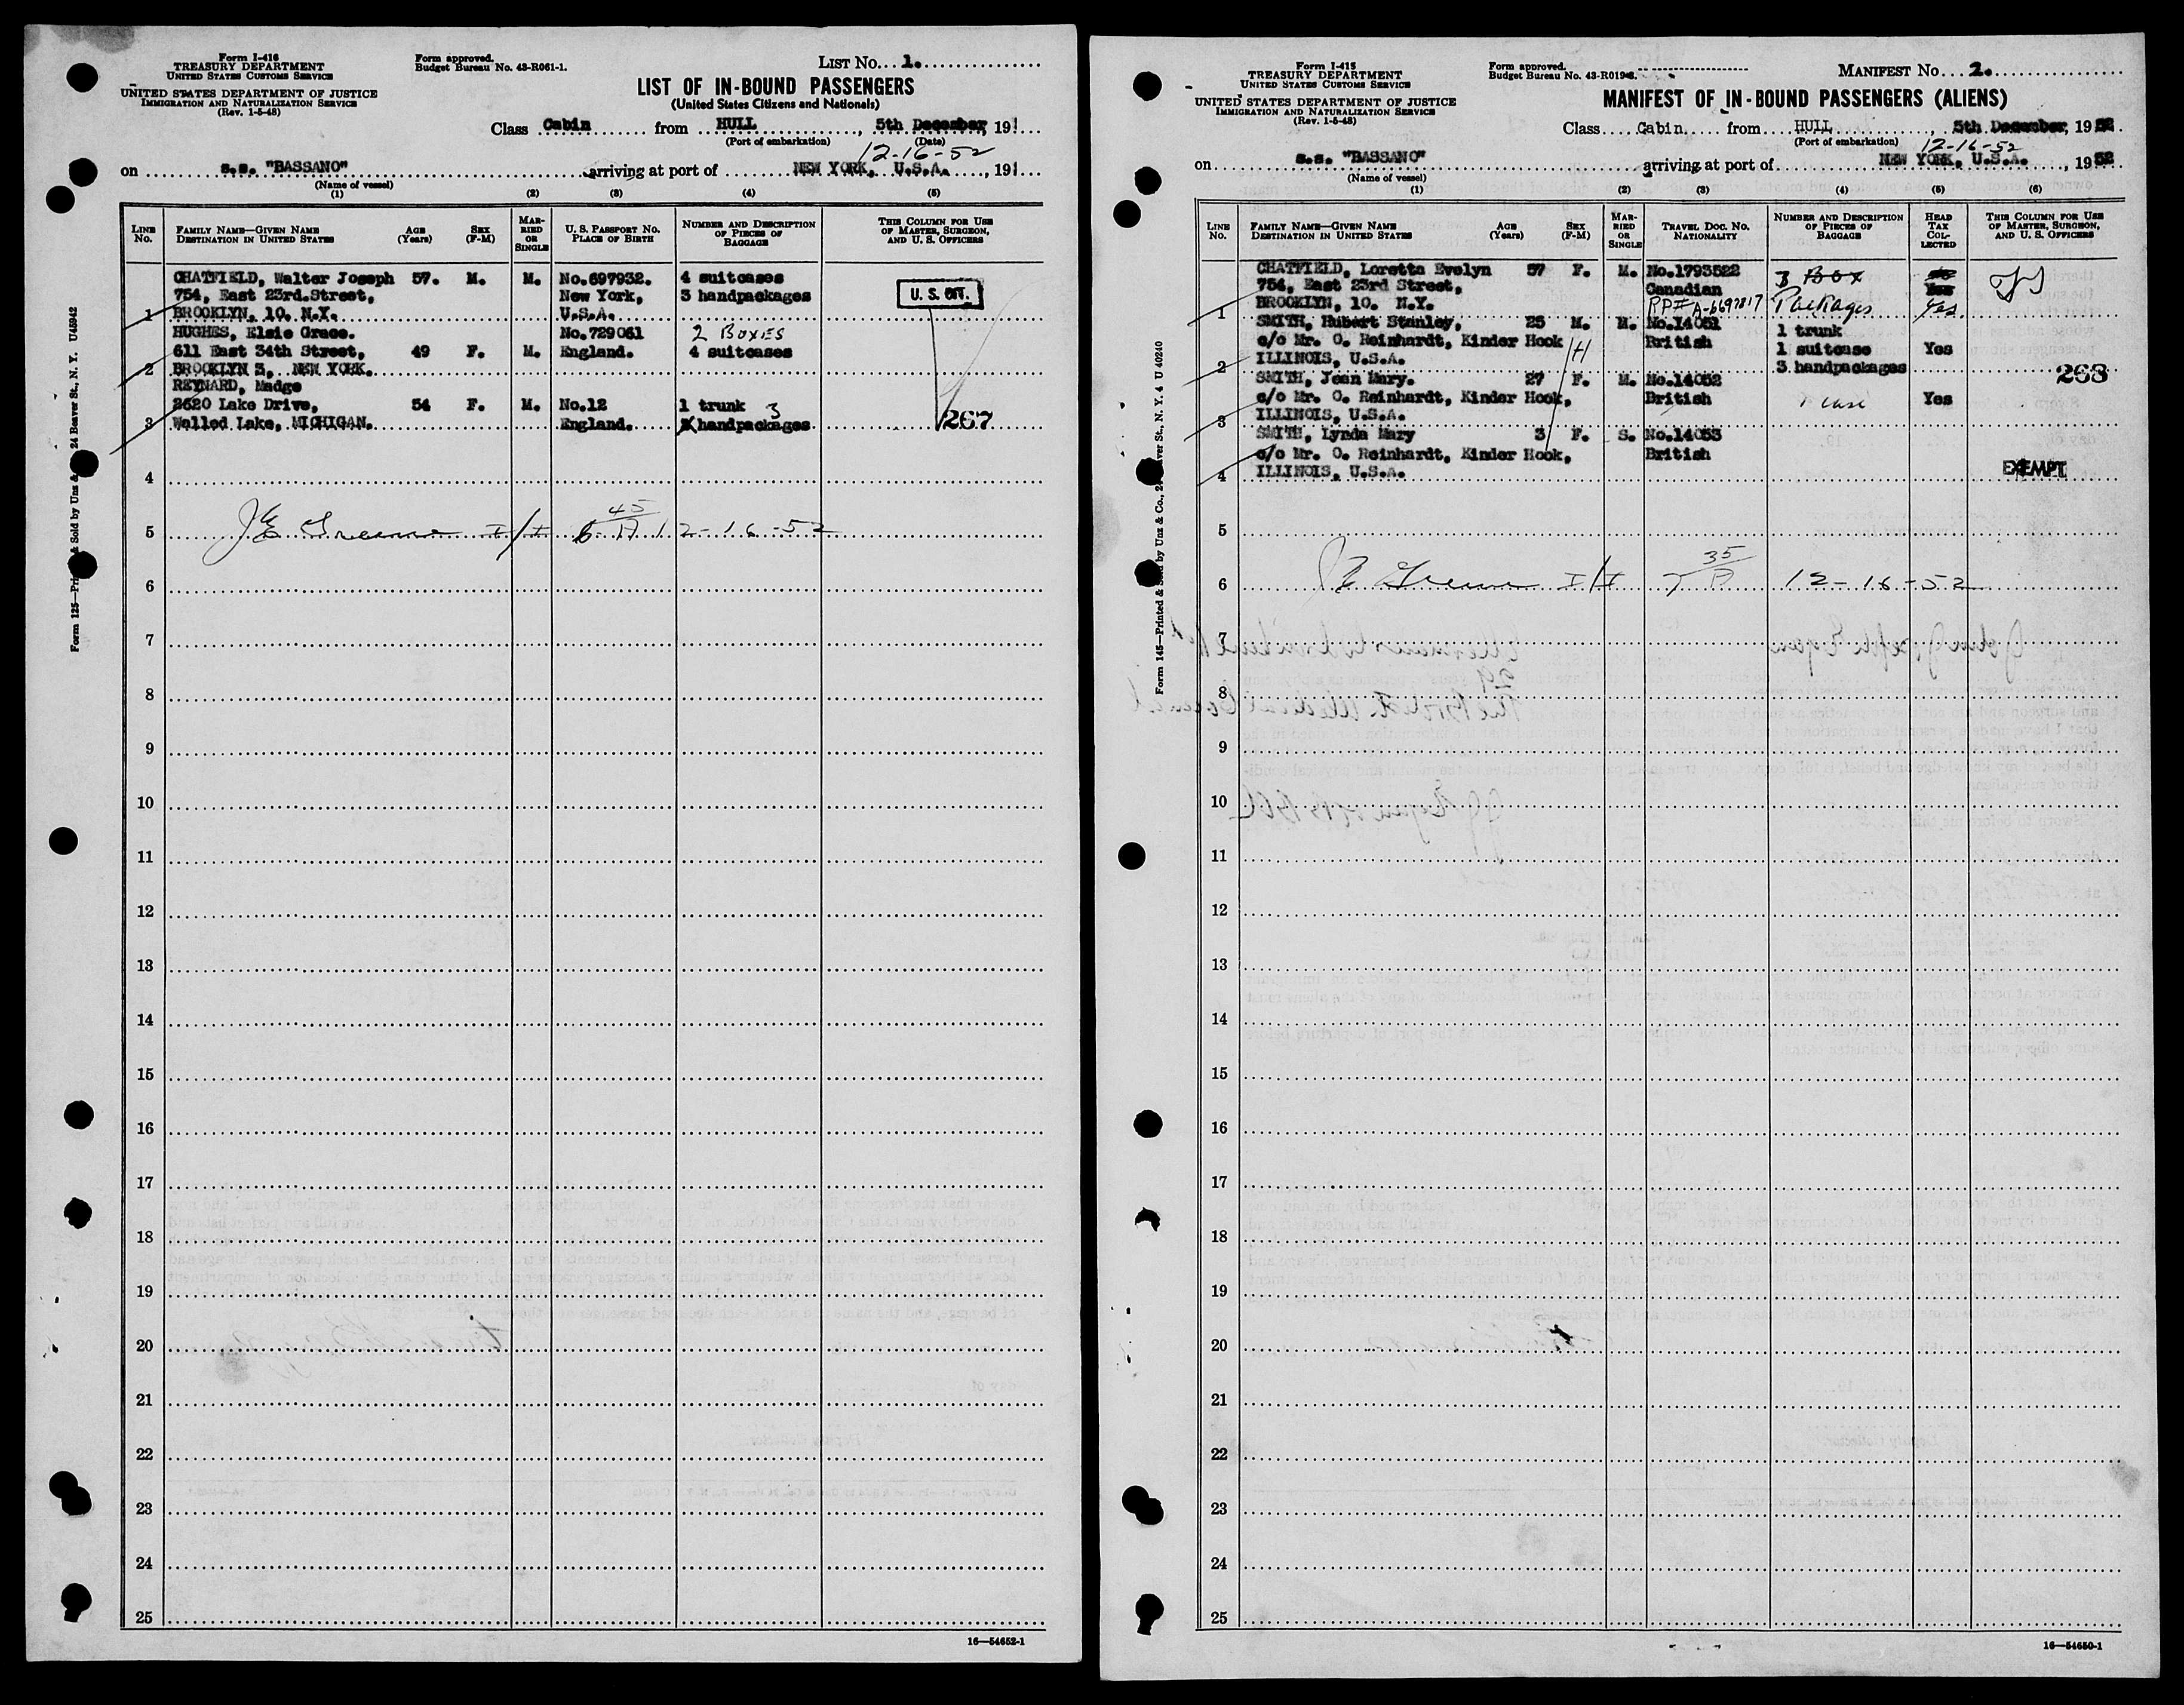 Form I-416
TREASURY DEPARTMENT
UNITED STATES CUSTOMS SERVICE
UNITED STATES DEPARTMENT OF JUSTICE
IMMIGRATION AND NATURALIZATION SERVICE
(Rev. 1-5-48)
Form approved.
Budget Bureau No. 43-R061-1.
LIST No. 1.
LIST OF IN-BOUND PASSENGERS
(United States Citizens and Nationals)
Class Cabin from HULL, 5th December, 191
(Port of embarkation) (Date)
12-16-52
on s.s. "BASSANO" arriving at port of NEW YORK, U.S.A., 191
(Name of vessel)
(1) (2) (3) (4) (5)
LINE No. FAMILY NAME—GIVEN NAME DESTINATION IN UNITED STATES AGE (Years) SEX (F-M) MARRIED OR SINGLE U. S. PASSPORT NO. PLACE OF BIRTH NUMBER AND DESCRIPTION OF PIECES OF BAGGAGE THIS COLUMN FOR USE OF MASTER, SURGEON, AND U. S. OFFICERS
CHATFIELD, Walter Joseph 57. M. M. No.697932. 4 suitcases
754, East 23rd.Street, New York, 3 handpackages U. S. CIT.
1 BROOKLYN, 10. N.Y. U.S.A.
HUGHES, Elsie Grace. No.729061 2 BOXES
611 East 34th Street, 49 F. M. England. 4 suitcases
2 BROOKLYN 3, NEW YORK.
REYNARD, Madge
2620 Lake Drive, 54 F. M. No.12 1 trunk 3
3 Walled Lake, MICHIGAN. England. handpackages. 267
4
5 Greene I/I 12-16-52
45
6
7
8
9
10
11
12
13
14
15
16
17
18
19
20
21
22
23
24
25
16—54652-1
Form I-415
TREASURY DEPARTMENT
UNITED STATES CUSTOMS SERVICE
UNITED STATES DEPARTMENT OF JUSTICE
IMMIGRATION AND NATURALIZATION SERVICE
(Rev. 1-5-48)
Form approved.
Budget Bureau No.
MANIFEST No. 2.
MANIFEST OF IN-BOUND PASSENGERS (ALIENS)
Class Cabin from HULL, 5th December, 1952
(Port of embarkation)
12-16-52
on s.s. "BASSANO" arriving at port of NEW YORK, U.S.A., 1952
(Name of vessel)
(1) (2) (3) (4) (5) (6)
LINE No. FAMILY NAME—GIVEN NAME DESTINATION IN UNITED STATES AGE (Years) SEX (F-M) MARRIED OR SINGLE TRAVEL DOC. NO. NATIONALITY NUMBER AND DESCRIPTION OF PIECES OF BAGGAGE HEAD TAX COLLECTED THIS COLUMN FOR USE OF MASTER, SURGEON, AND U. S. OFFICERS
CHATFIELD, Loretta Evelyn 57 F. M. No.1793522 3 Box
754, East 23rd Street, Canadian
1 BROOKLYN, 10. N.Y. RP# A-6697817 Packages Yes.
SMITH, Hubert Stanley, 25 M. M. No.14051 1 trunk
c/o Mr. O. Reinhardt, Kinder Hook British 1 suitcase Yes
2 ILLINOIS, U.S.A. 3 handpackages 268
SMITH, Jean Mary. 27 F. M. No.14052
c/o Mr. O. Reinhardt, Kinder Hook, British 1 case Yes
3 ILLINOIS, U.S.A.
SMITH, Lynda Mary 3 F. S. No.14053
c/o Mr. O. Reinhardt, Kinder Hook, British
4 ILLINOIS, U.S.A. EXEMPT
5
6 Greene I/I 12-16-52
35
7
8
9
10
11
12
13
14
15
16
17
18
19
20
21
22
23
24
25
16—54650-1